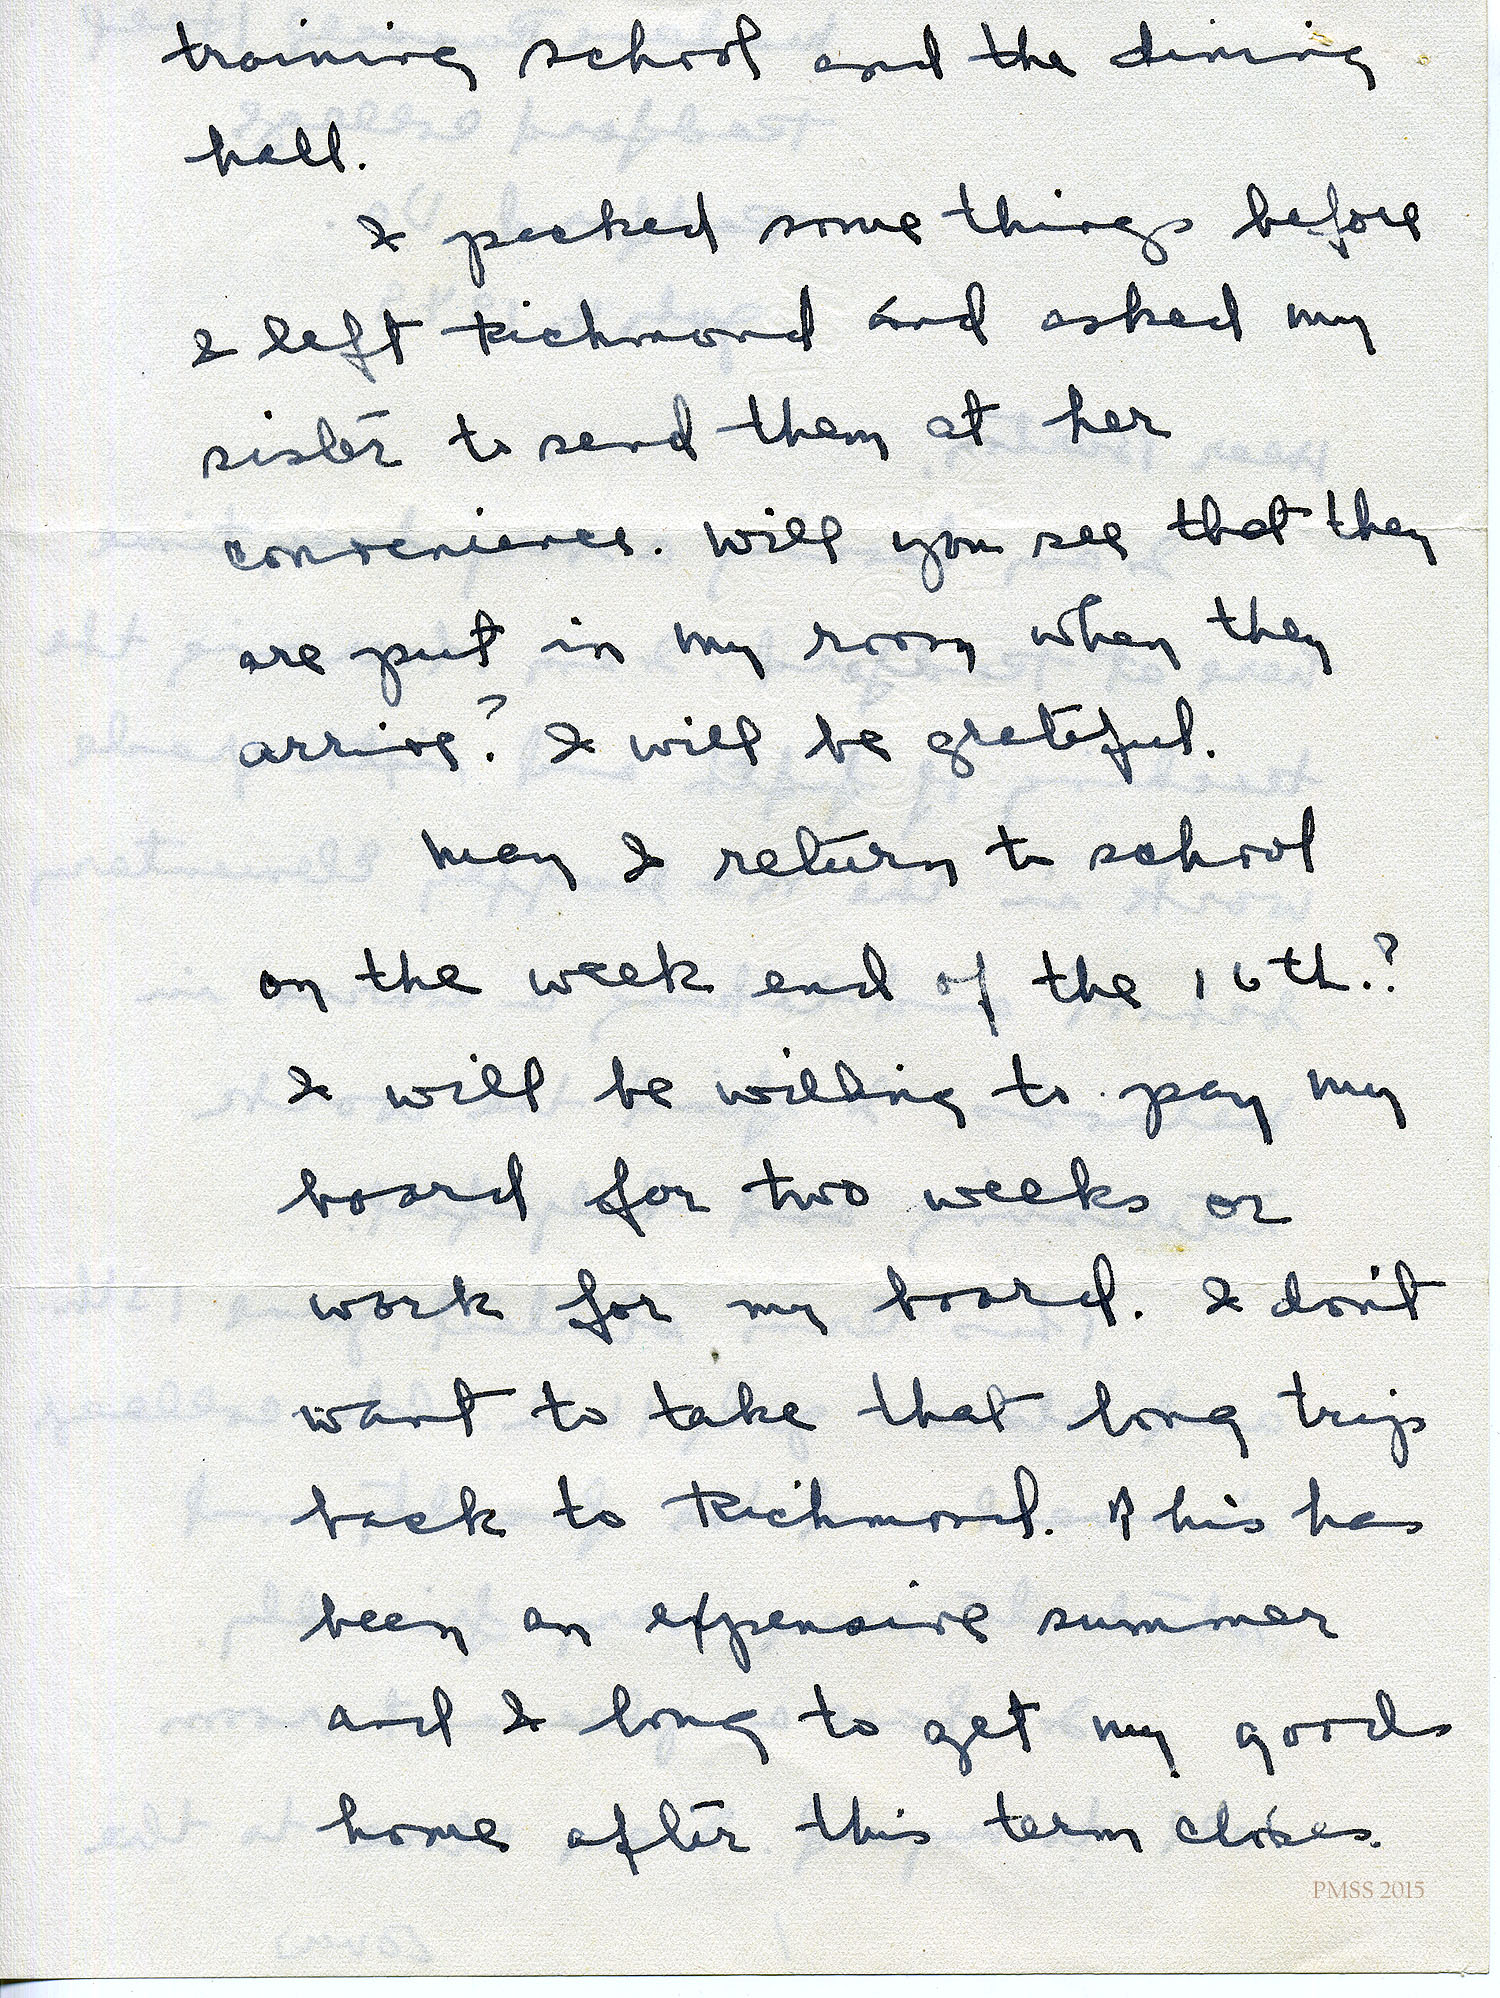 training school and the dining
hall.
I packed some things before
I left Richmond and asked my
sister to send them at her
convenience. Will you see that they
are put in my room when they
arrive? I will be grateful.
May I return to school
on the week end of the 16th.?
I will be willing to pay my
board for two weeks or
work for my board. I don't
want to take that long trip
back to Richmond. This has
been an expensive summer
and I long to get my goods
home after this term closes.
PMSS 2015